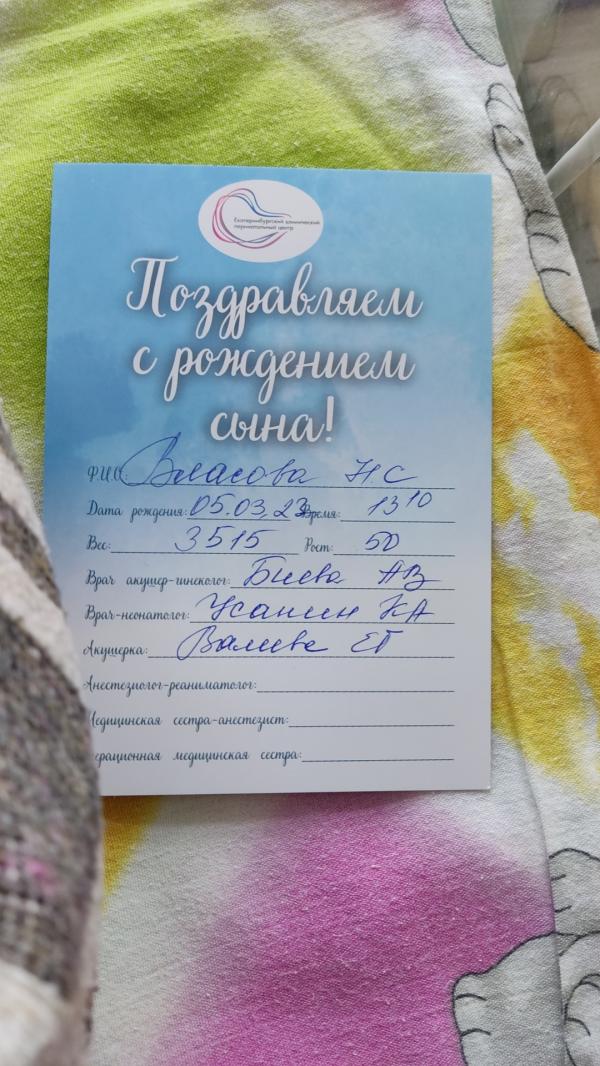 Екатеринбургский клинический
перинатальный центр
Поздравляем
с рождением
сына!
Ф.И.О: Власова Н.С
Дата рождения: 05.03.23 Время: 13 10
Вес: 3515 Рост: 50
Врач акушер-гинеколог: Биева АВ
Врач-неонатолог: Усанин КА
Акушерка: Валиева ЕГ
Анестезиолог-реаниматолог:
Медицинская сестра-анестезист:
ерационная медицинская сестра: